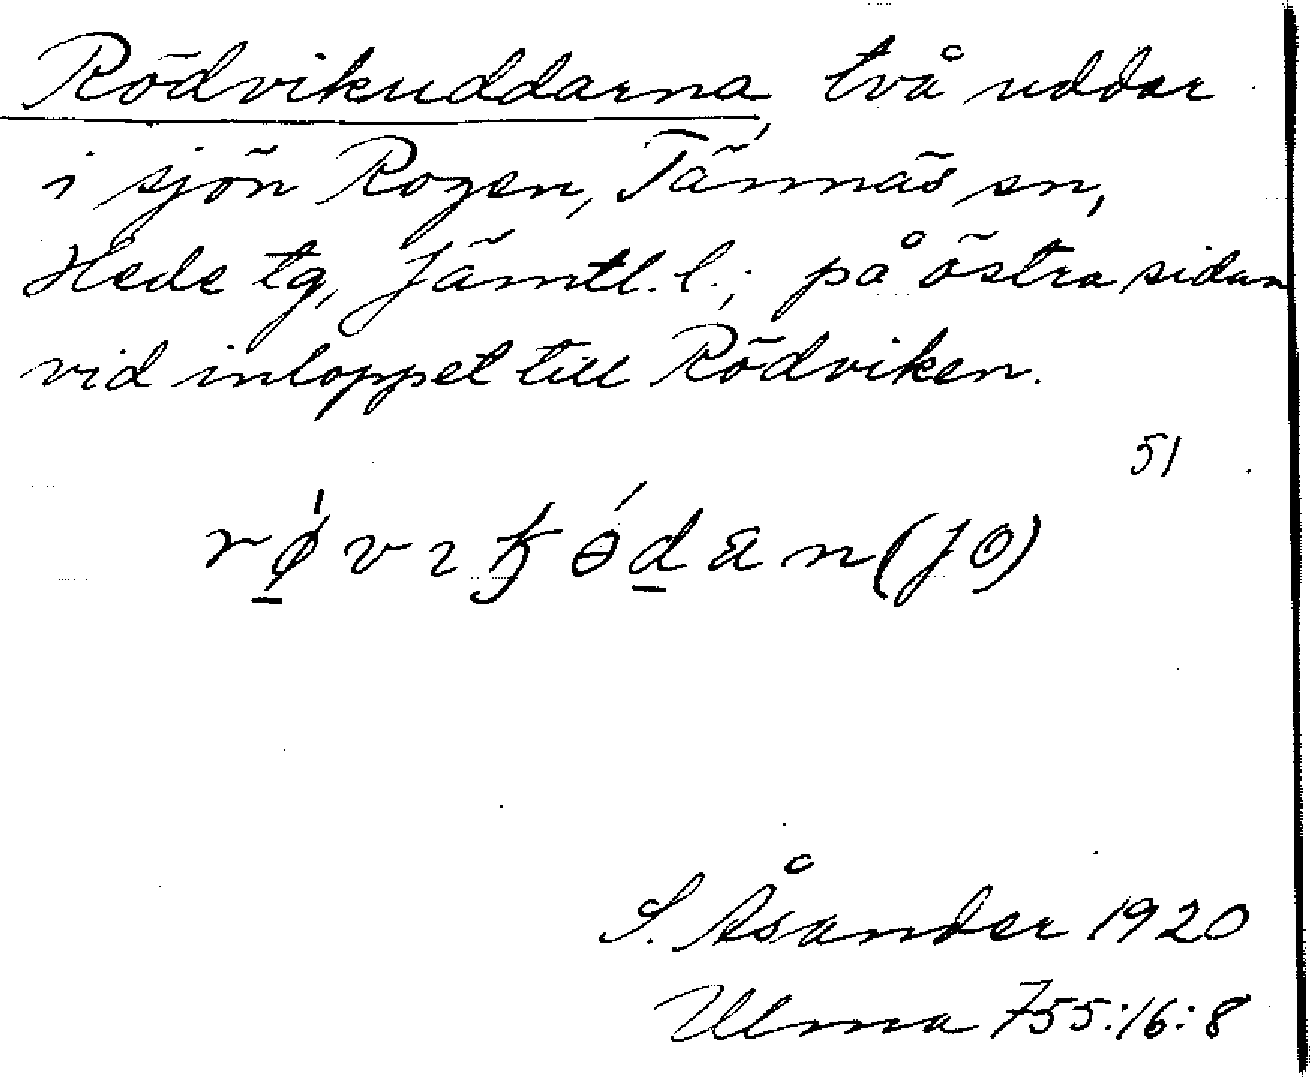 Rödvikuddarna, två uddar
i sjön Rogen, Tännäs sn,
Hede tg, Jämtl. l.; på östra sidan
vid inloppet till Rödviken.
51
(JO)
S. Åsander 1920
Ulma 755:16:8